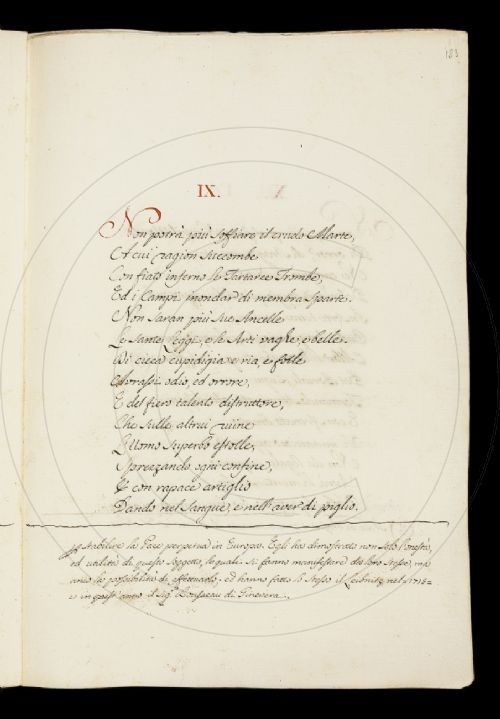 183
IX.
Non potrà più soffiare il crudo Marte,
A cui ragion succombe
Con fiato inferno le Tartaree Trombe,
Ed i Campi inondar di membra sparte.
Non saran più sue Ancelle
Le Sante Leggi, e le Arti vaghe, e belle.
Di cieca cupidigia e ria, e folle
Avrassi odio, ed orrore,
E del fiero talento distruttore,
Che sulle altrui ruine
L'Uomo Superbo estolle,
Sprezzando ogni confine,
E con rapace artiglio
Dando nel Sangue, e nell'aver di piglio.
stabilire la Pace perpetua in Europa. Egli ha dimostrato non solo l'onestà,
ed utilità di questo soggetto, le quali si fanno manifeste da loro stesse, ma
anco la possibilità di effettuarlo, ed hanno fatto lo stesso il Leibnitz nel
e in quest'anno il Sig.r Rousseau di Ginevra.